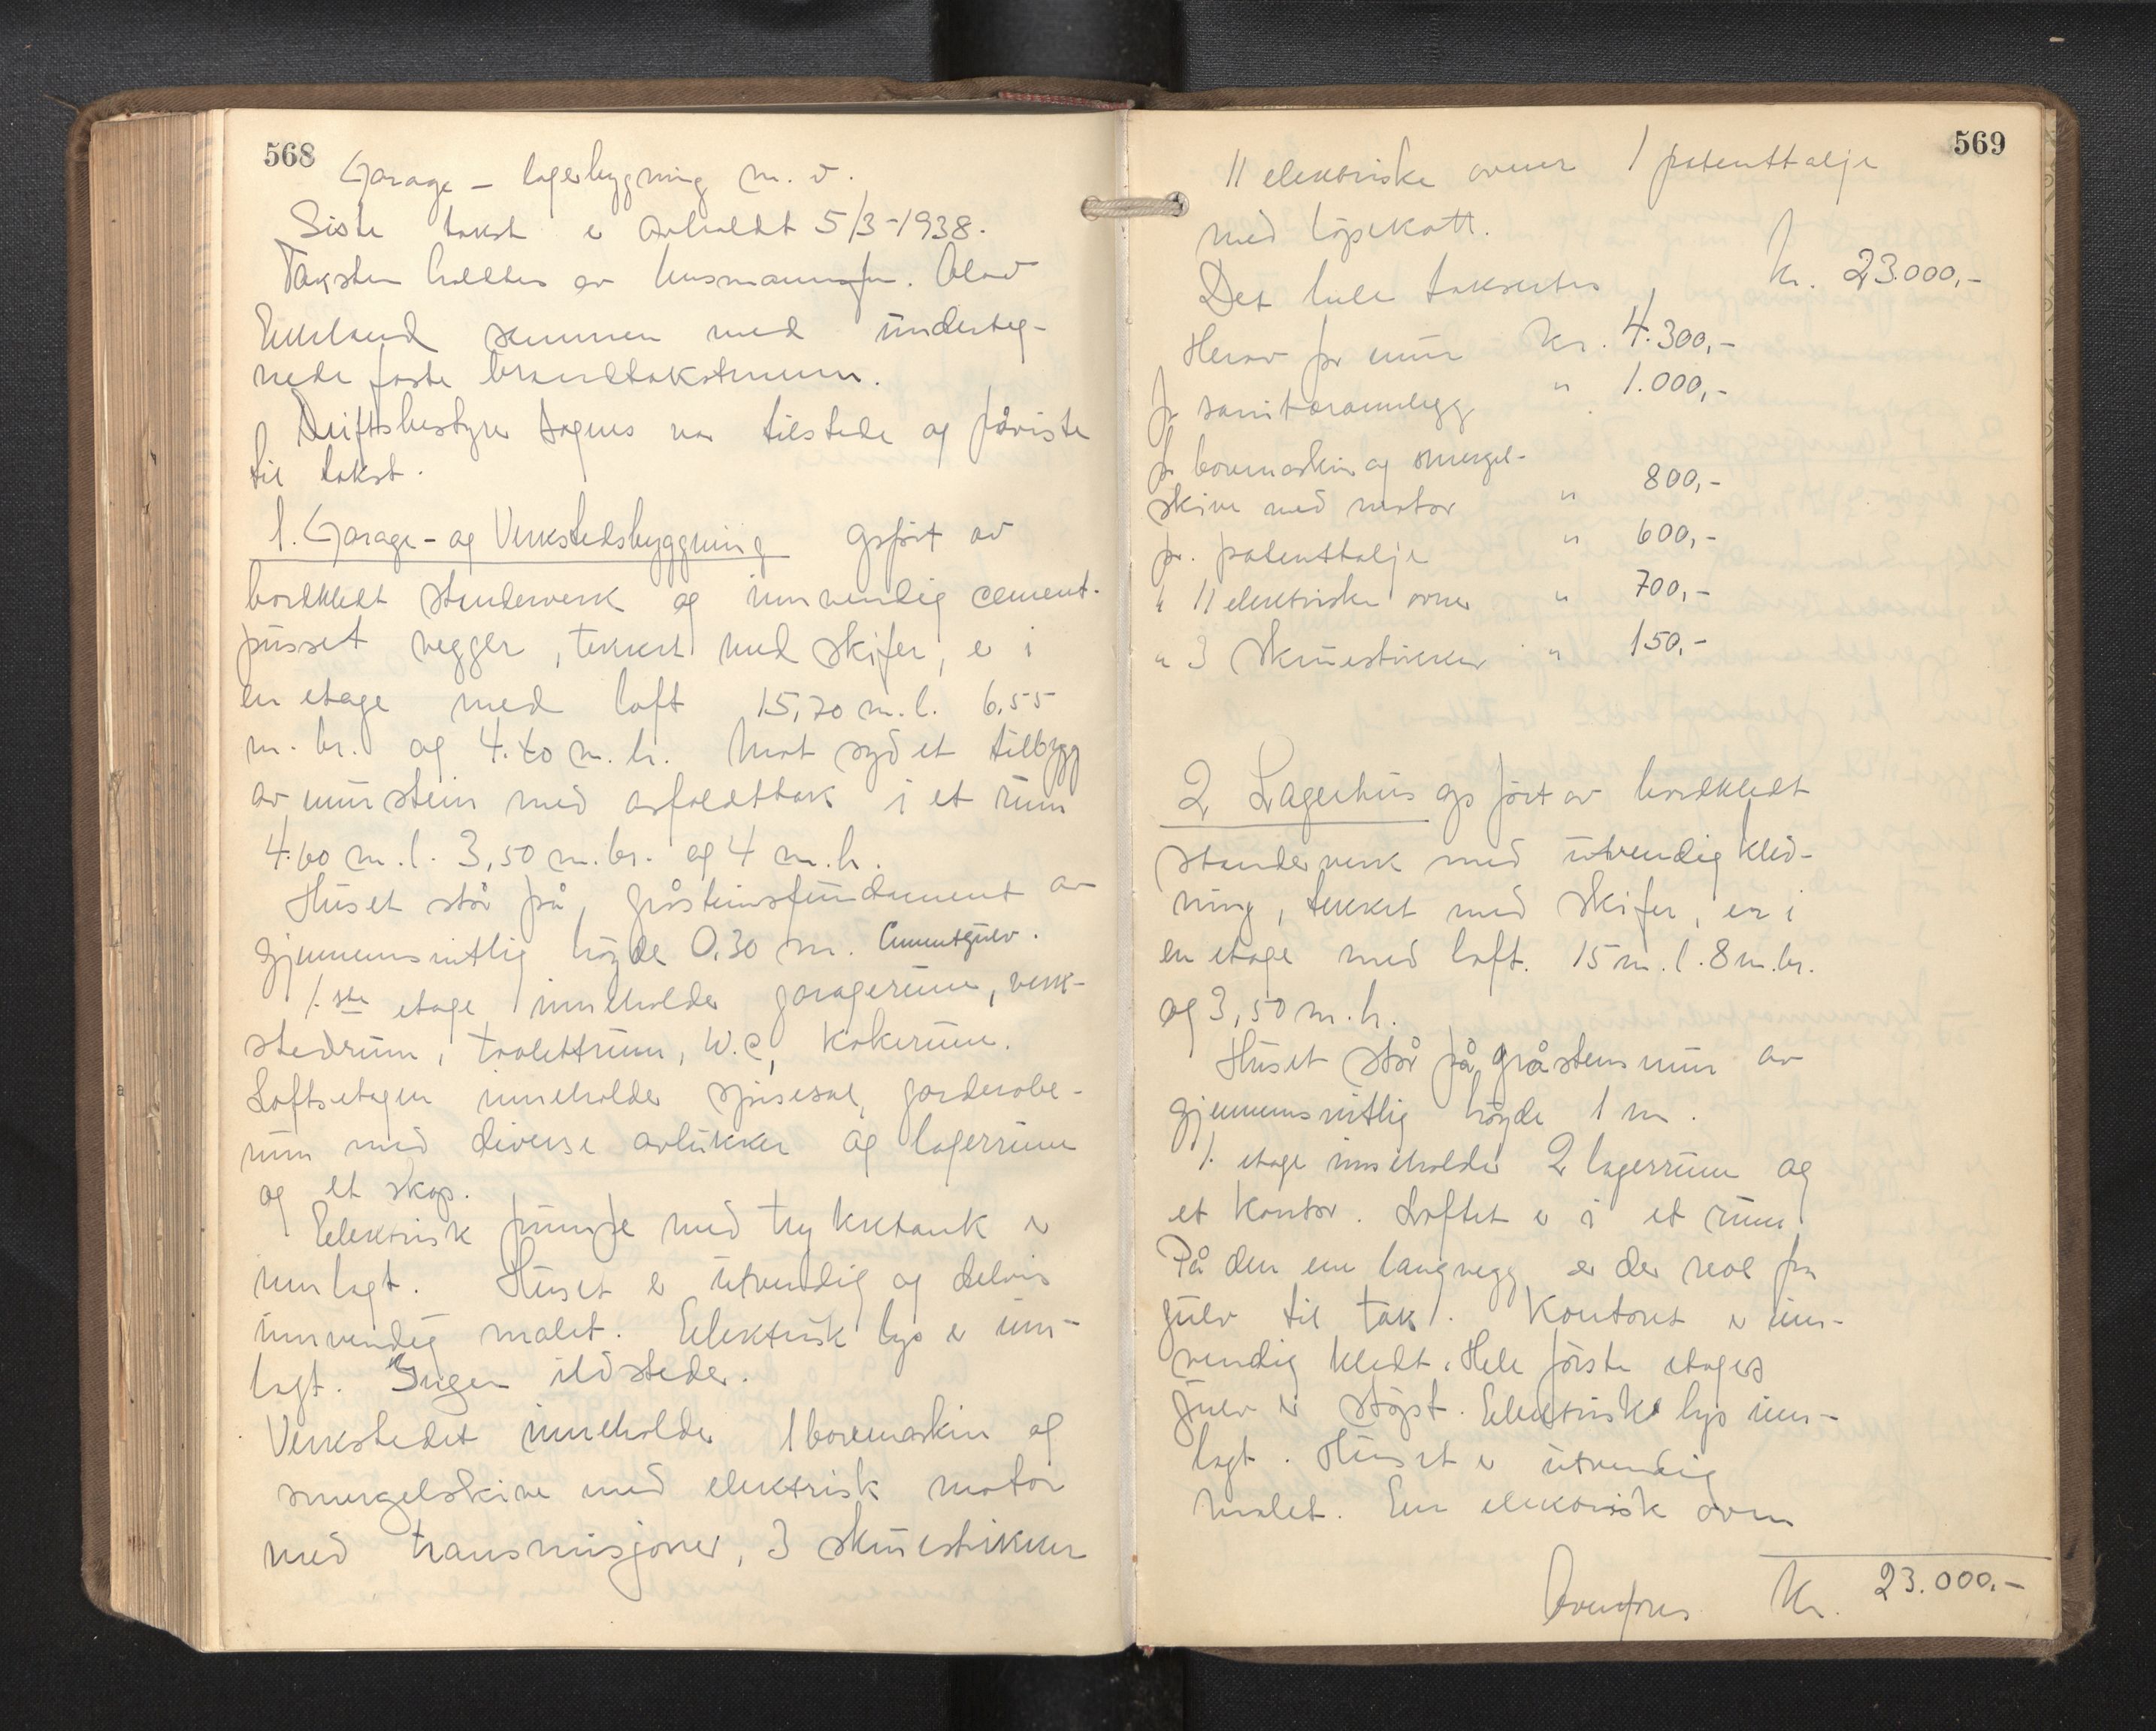 568
Garage - lagerbygning m. v.
Siste takst er avholdt 5/3-1938.
Taksten holdtes av lensmannsfm. Olav
sammen med underteg-
nede faste branntakstmenn.
Driftsbestyrer var tilstede og påviste
til takst.
1. Garage- og Verkstedsbyggning opført av
bordkledt stenderverk og innvendig cement-
pusset vegger, tekket med skifer, er i
en etage med loft 15,70 m. l. 6,55
m. br. og 4.40 m. h. Mot syd et tilbygg
av murstein med asfalttak i et rum
4.60 m. l. 3,50 m. br. og 4 m. h.
Huset står på gråsteinsfundament av
gjennemsnitlig høyde 0.30 m. Cementgulv.
1.ste etage inneholder garagerum, verk-
stedrum, toalettrum, W.C, kokerum.
Loftsetagen inneholder spisesal, garderobe-
rum med diverse avlukker og lagerrum
og et skap.
Elektrisk pumpe med trykktank er
innlagt. Huset er utvendig og delvis
innvendig malet. Elektrisk lys er inn-
lagt. Ingen ildsteder.
Verkstedet inneholder 1 boremaskin og
smergelskive med elektrisk motor
med transmisjoner, 3 skruestikker
569
11 elektriske ovner 1 patenttalje
med løpekatt.
Det hele takseres kr. 23.000,-
Herav for mur kr. 4.300,-
for sanitæranlegg " 1.000,-
for boremaskin og smergel-
skive med motor " 800,-
for patenttalje " 600,-
" 11 elektriske ovner " 700,-
" 3 skruestikker " 150,-
2 Lagerhus opført av bordkledt
stenderverk med utvendig kled-
ning, tekket med skifer, er i
en etage med loft. 15 m. l. 8 m. br.
og 3,50 m. h.
Huset står på gråstensmur av
gjennemsnitlig høyde 1 m.
1. etage inneholder 2 lagerrum og
et kontor. Loftet er i et rum.
På den ene langvegg er der reol fra
gulv til tak. Kontoret er inn-
vendig kledt. Hele første etages
gulv er støpt. Elektrisk lys inn-
lagt. Huset er utvendig
malet. En elektrisk ovn
Overføres kr. 23.000.-